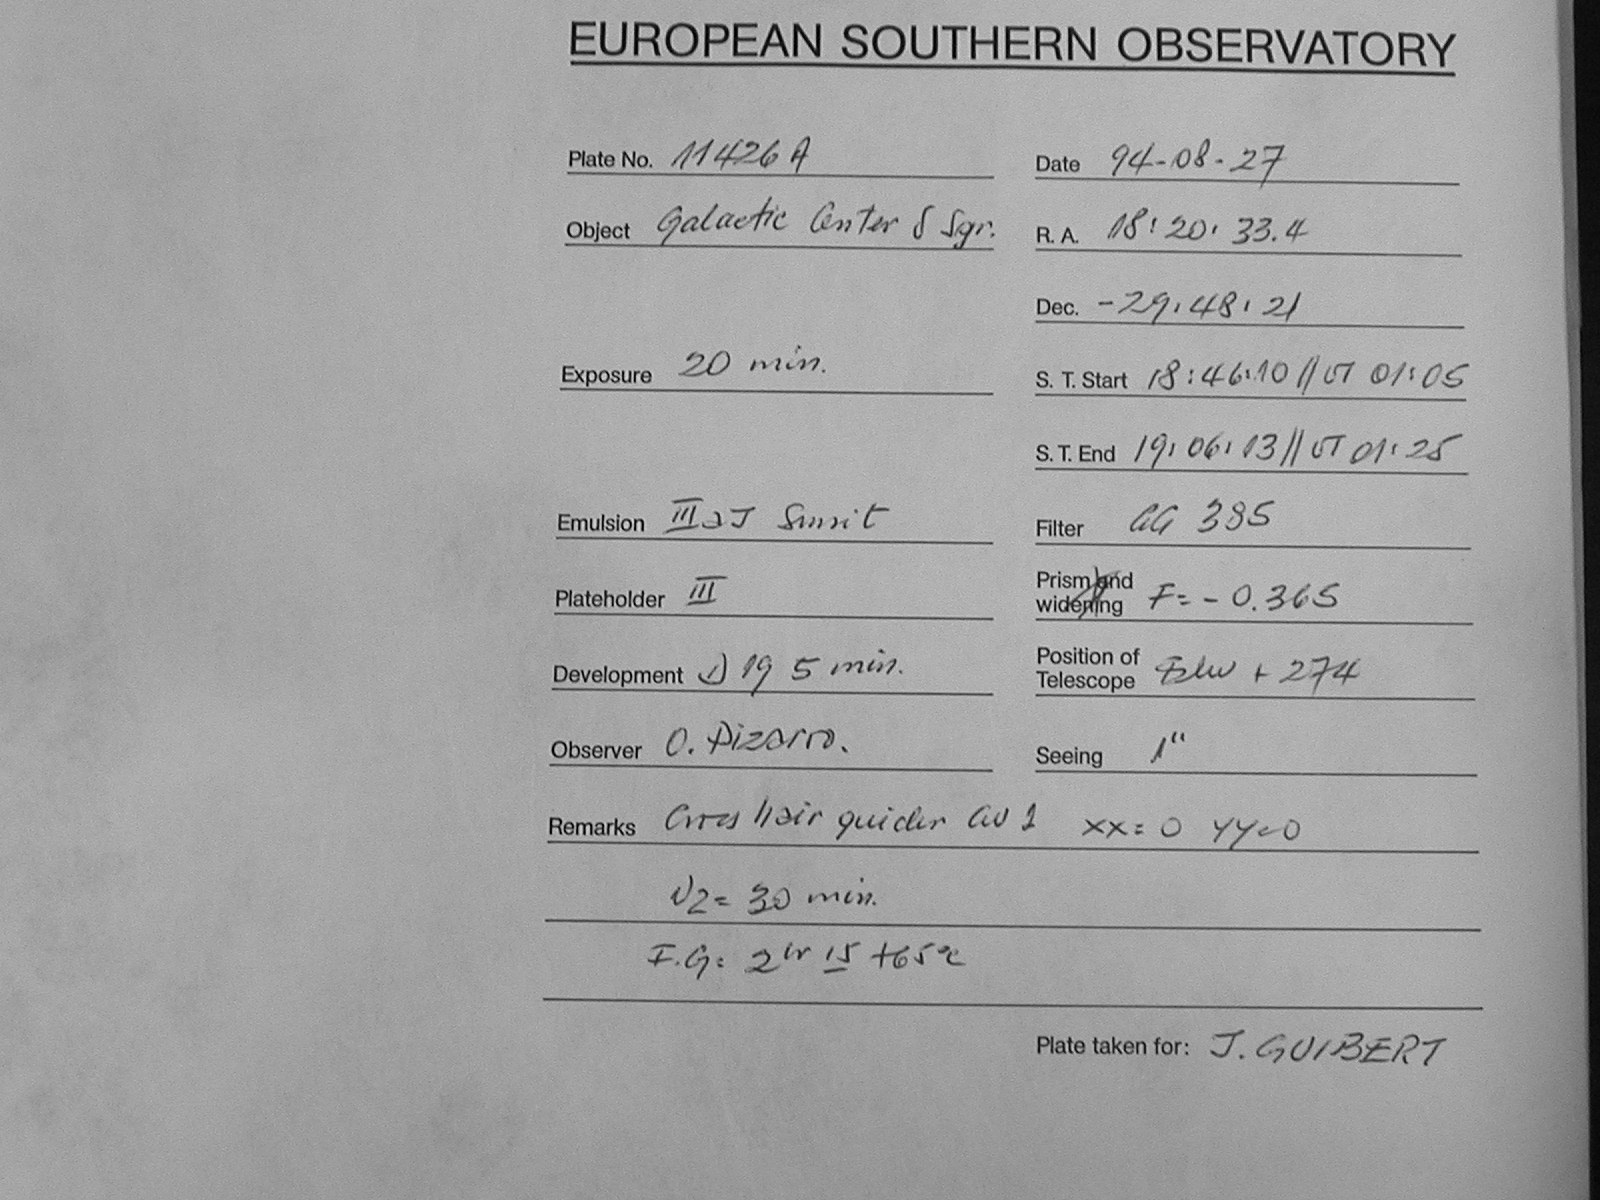 EUROPEAN SOUTHERN OBSERVATORY
Plate No. 11426 A
Date 94-08-27
Object Galactic Center δ Sgr.
R. A. 18:20:33.4
Dec. -29:48:21
Exposure 20 min.
S. T. Start 18:46:10 // UT 01:05
S. T. End 19:06:13 // UT 01:25
Emulsion III aJ
Filter GG 385
Plateholder III
Prism and widening F= - 0.365
Development 19 5 min.
Position of Telescope + 274
Observer O. Pizarro.
Seeing 1"
Remarks Cross hair guider XX=0 YY=0
N2= 30 min.
F.G: 2hr 15 +65°C
Plate taken for: J. GUIBERT